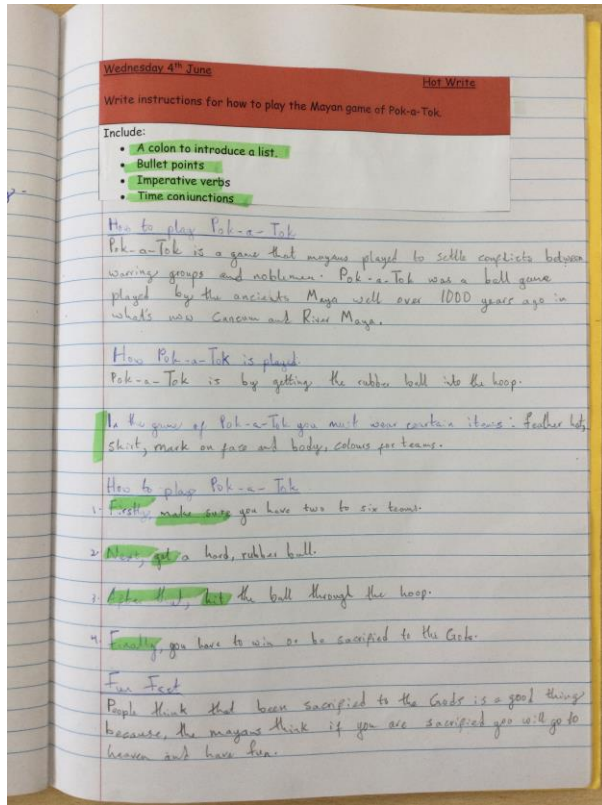 Wednesday 4th June
Hot Write
Write instructions for how to play the Mayan game of Pok-a-Tok.
Include:
• A colon to introduce a list.
• Bullet points
• Imperative verbs
• Time conjunctions
How to play Pok-a-Tok
Pok-a-Tok is a game that mayans played to settle conflicts between
warring groups and noblemen. Pok-a-Tok was a ball game
played by the ancients Maya well over 1000 years ago in
what's now Cancum and River Maya.
How Pok-a-Tok is played.
Pok-a-Tok is by getting the rubber ball into the hoop.
In the game of Pok-a-Tok you must wear certain items: feather hat,
skirt, mark on face and body, colours for teams.
How to play Pok-a-Tok
1. Firstly, make sure you have two to six teams.
2. Next, get a hard, rubber ball.
3. After that, hit the ball through the hoop.
4. Finally, you have to win or be sacrificed to the Gods.
Fun Fact
People think that been sacrificed to the Gods is a good thing
because, the mayans think if you are sacrificed you will go to
heaven and have fun.